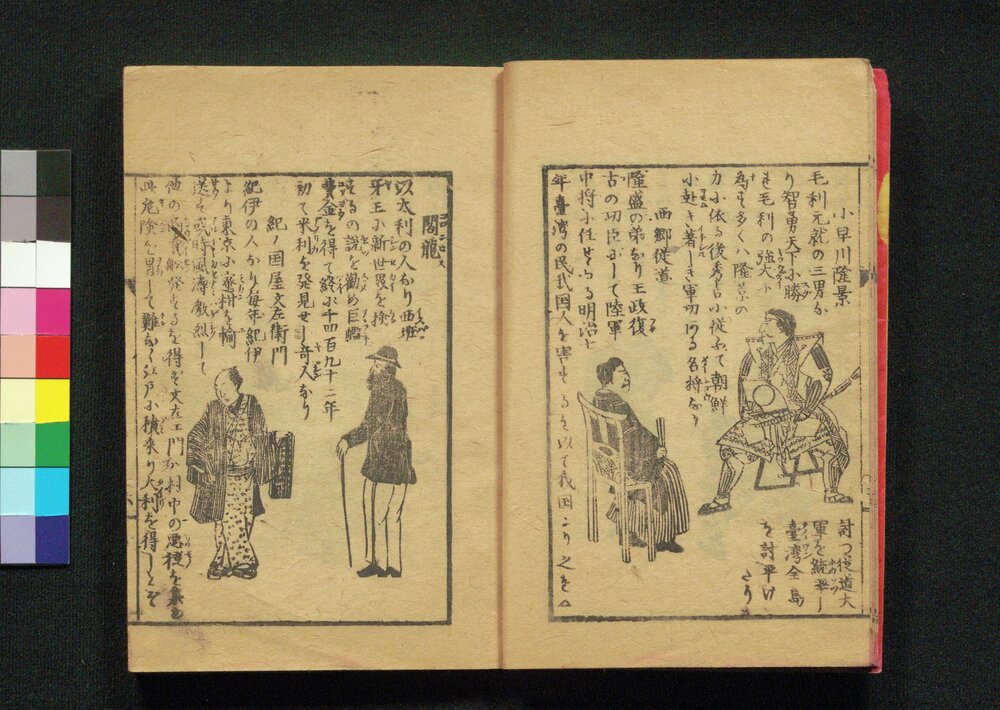 小早川隆景
毛利元就の三男な
り智勇天下に勝
れ毛利の強大に
為すも多くハ隆景の
力に依る後秀吉に従ふて朝鮮
に赴き著しき軍功ある名将なり
西郷従道
隆盛の弟なり王政復
古の功臣にして陸軍
中将に任せらる明治七
年臺湾の民我国人を害せるを以て我国より之を
討つ従道大
軍を統率し
臺湾全島
を討平け
たり
閣龍
コロンブス
以太利の人なり西班
牙王に新世界を検
するの説を勧め巨艦
費金を得て終に千四百九十二年
初て米利を発見せし奇人なり
紀ノ国屋文左衛門
紀伊の人なり毎年紀伊
より東京に蜜柑を輸
送す或時風涛激烈して
他の船発するを得ず文左エ門か村中の悪種を集め
此危険を冒して難なく江戸に積来り大利を得しとぞ